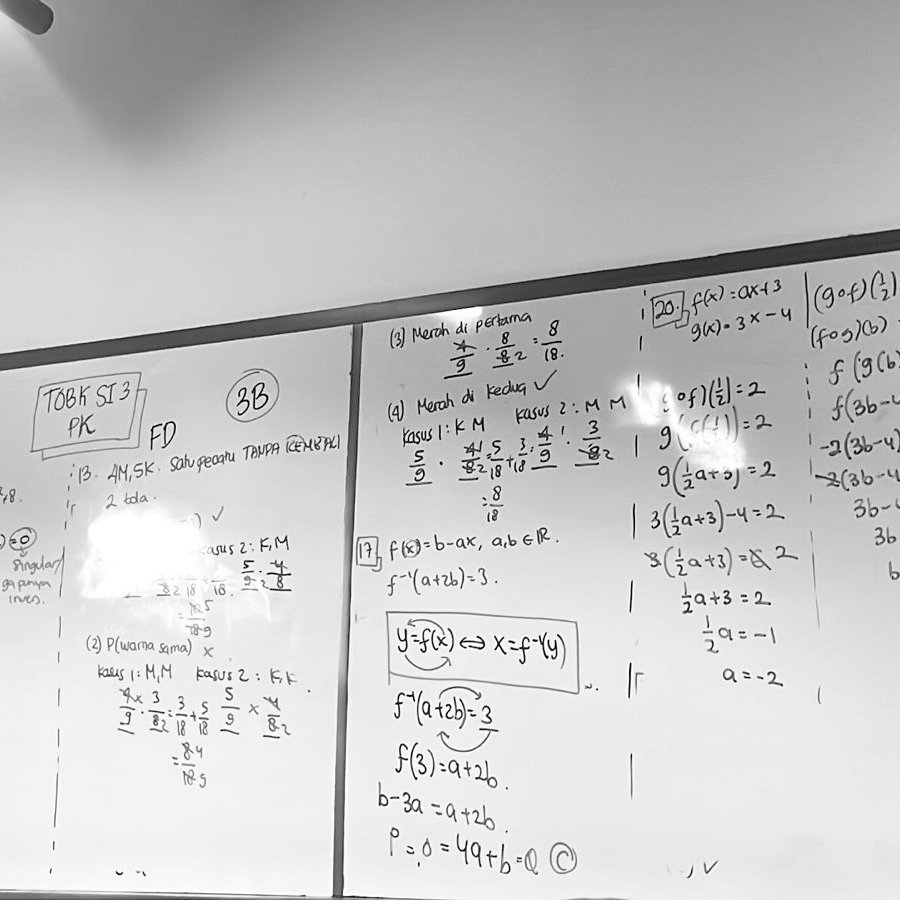 TOBK SI 3
PK
FD
3B
=0
Singular/
inves.
13. 4M, 5K. Satu persatu TANPA KEMBALI
2 bola.
✓
Kasus 2: K, M
5/9 · 4/8
(2) P(warna sama) x
Kasus 1: M, M Kasus 2: K, K
4/9 · 3/8 = 3/18 + 5/18 5/9 x 4/8
= 8/18 4/9
(3) Merah di pertama
4/9 · 8/8 = 8/18.
(4) Merah di kedua ✓
Kasus 1: K M Kasus 2: M M
5/9 · 4/8 = 5/18 + 3/18 ; 4/9 · 3/8
= 8/18
17. f(x) = b-ax, a,b ∈ R.
f⁻¹(a+2b) = 3.
y=f(x) ⇔ x=f⁻¹(y)
f⁻¹(a+2b)=3
f(3)=a+2b.
b-3a = a+2b.
P = 0 = 4a+b = Q C
20. f(x) = ax+3
g(x) = 3x-4
of)(1/2) = 2
g(f(1/2)) = 2
g(1/2a+3) = 2
3(1/2a+3)-4 = 2
3(1/2a+3) = 6 2
1/2a+3 = 2
1/2a = -1
a = -2
(gof)(1/2)
(fog)(b)
f(g(b)
f(3b-4
-2(3b-4)
-2(3b-4
3b-4
3b
b